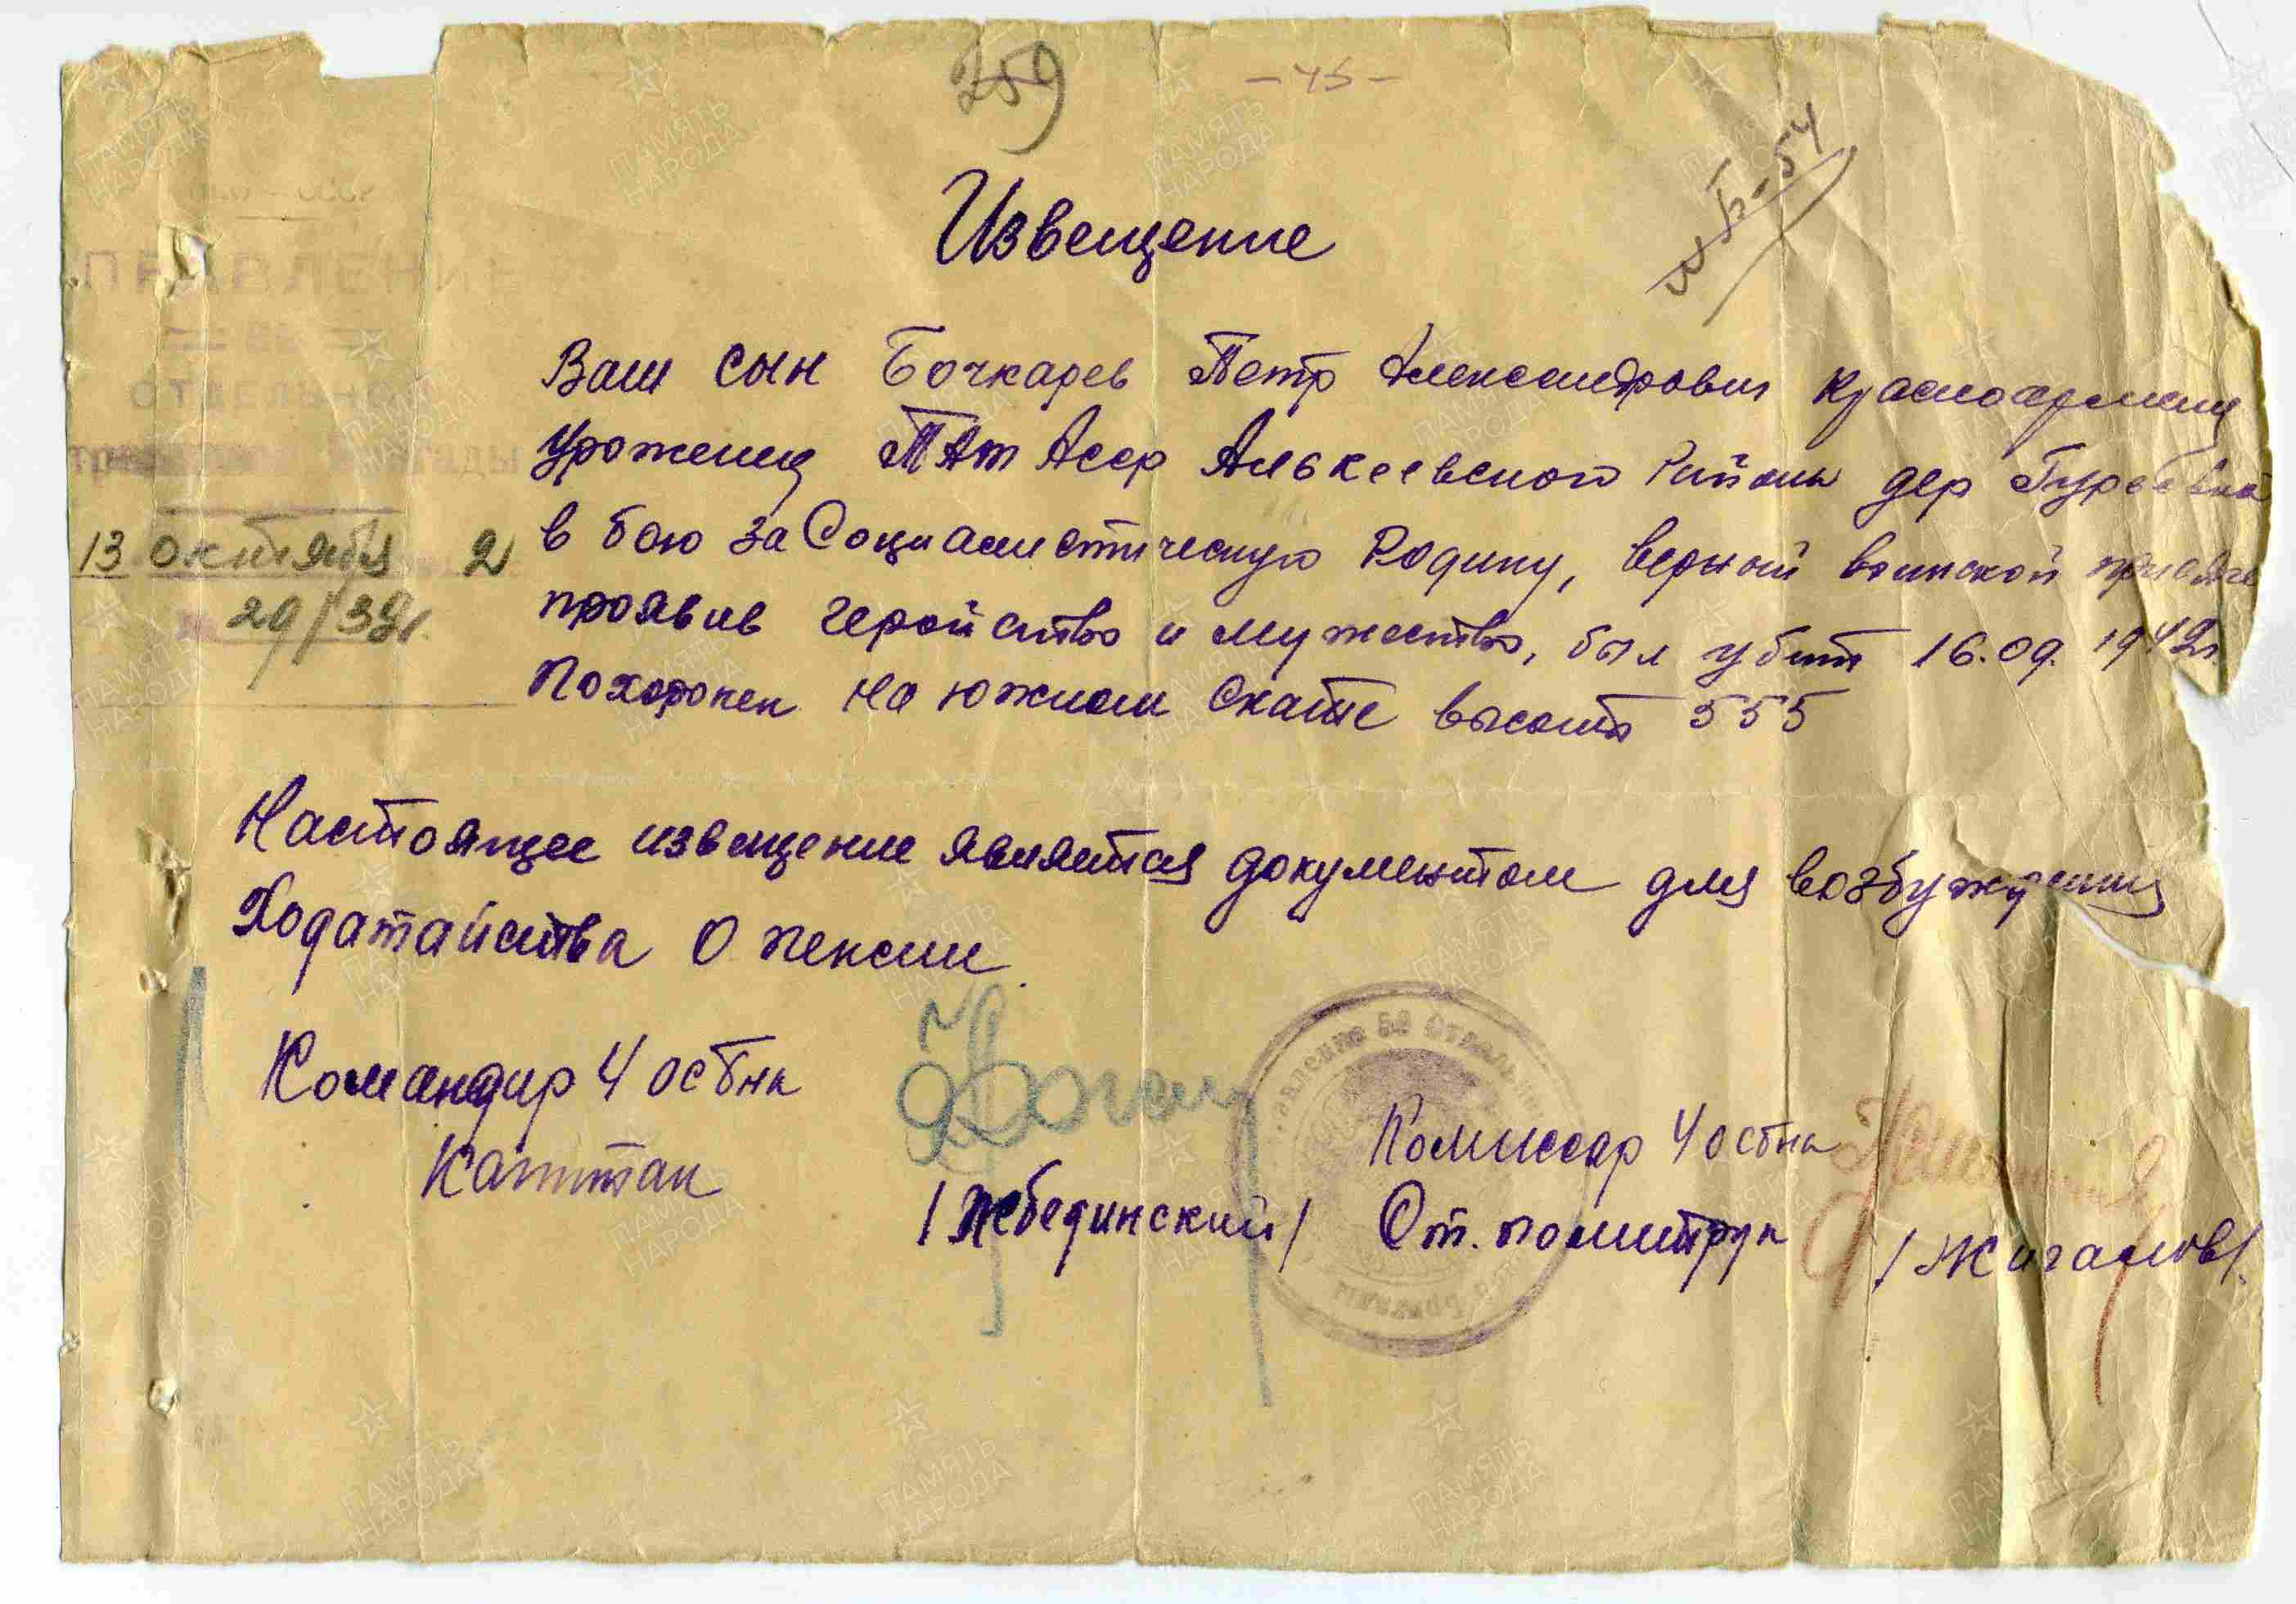 259
- 45 -
Б-54
Извещение
ПРАВЛЕНИЕ
ОТДЕЛЬНОЙ
13 октября 2
29/39г.
Ваш сын Бочкарев Петр Александрович красноармеец
Уроженец ТАт Асср Алькеевского Района дер
в бою за Социалистическую Родину, верный воинской присяге
проявив геройство и мужество, был убит 16.09. 1942г.
Похоронен на южном скате высоты 555
Настоящее извещение является документом для возбуждения
Ходатайства о пенсии
Командир 4 осбна
Капитан
/Лебединский/
Комиссар 4 осбна
Ст. политрук
/Жигалов/.
ПАМЯТЬ НАРОДА